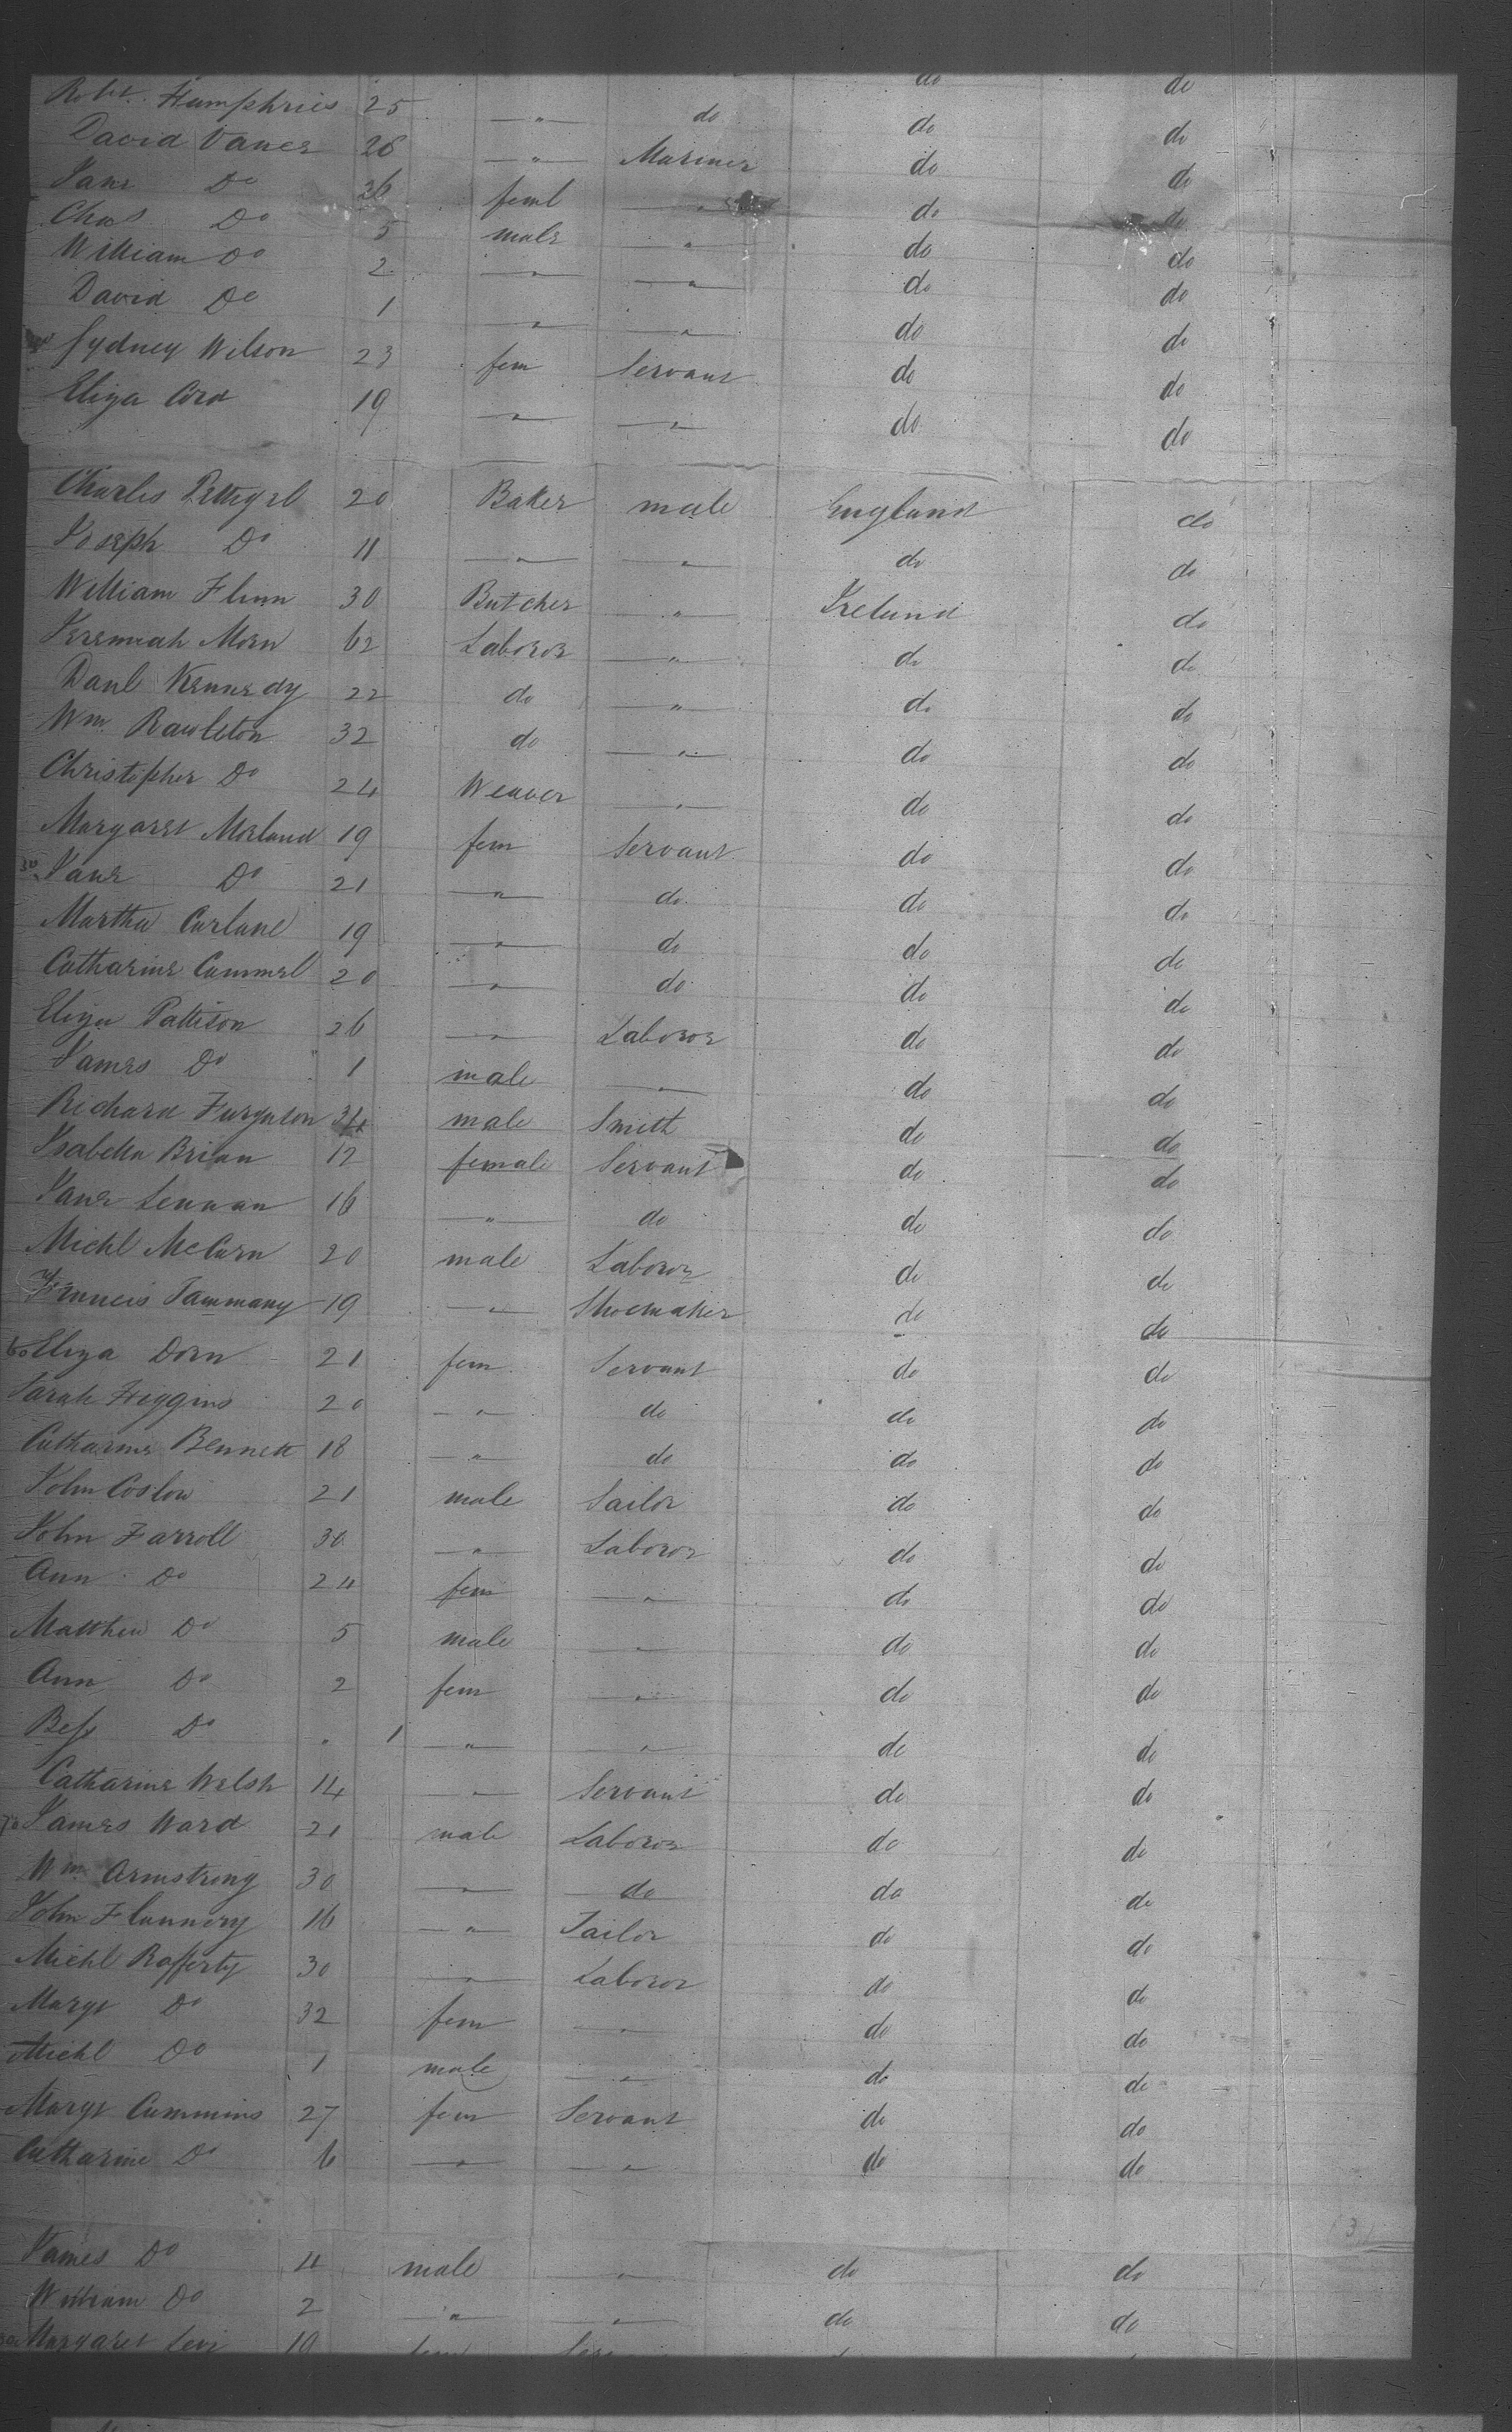 do do
Robt. Humphries 25 " do do do
David Vaner 26 " Mariner do do
Jane Do 26 feml " do do
Chas Do 5 male " do do
William Do 2 " " do do
David Do 1 " " do do
Sydney Wilson 23 fem Servant do do
Eliza Cord 19 " " do do
Charles Pettigrl 20 Baker male England do
Joseph Do 11 " " do do
William Flinn 30 Butcher " Ireland do
Jeremiah Morn 62 Laboror " do do
Danl Kennedy 22 do " do do
Wm. Rawleton 32 do " do do
Christopher Do 24 Weaver " do do
Margaret Morland 19 fem Servant do do
50 Jane Do 21 " do do do
Martha Carlane 19 " do do do
Catharine Cammel 20 " do do do
Eliza Pattison 26 " Laboror do do
James Do 1 male " do do
Richard Furguson 34 male Smith do do
Isabella Brian 12 female Servant do do
Jane Lennan 16 " do do do
Michl McCarn 20 male Laboror do do
Francis Tammany 19 " Shoemaker do do
60 Eliza Dorn 21 fem Servant do do
Sarah Higgins 20 " do do do
Catharine Bennett 18 " do do do
John Coslow 21 male Sailor do do
John Farroll 30 " Laboror do do
Ann Do 24 fem " do do
Matthew Do 5 male " do do
Ann Do 2 fem " do do
Bess Do " 1 " " do do
Catharine Welsh 14 " Servant do do
70 James Ward 21 male Laboror do do
Wm Armstrong 30 " do do do
John Flannery 16 " Tailor do do
Michl Rafferty 30 " Laboror do do
Margt Do 32 fem " do do
Michl Do 1 male " do do
Margt Cummins 27 fem Servant do do
Catharine Do 6 " " do do
(3)
James Do 4 male " do do
William Do 2 " " do do
Margaret Levi 10 fem